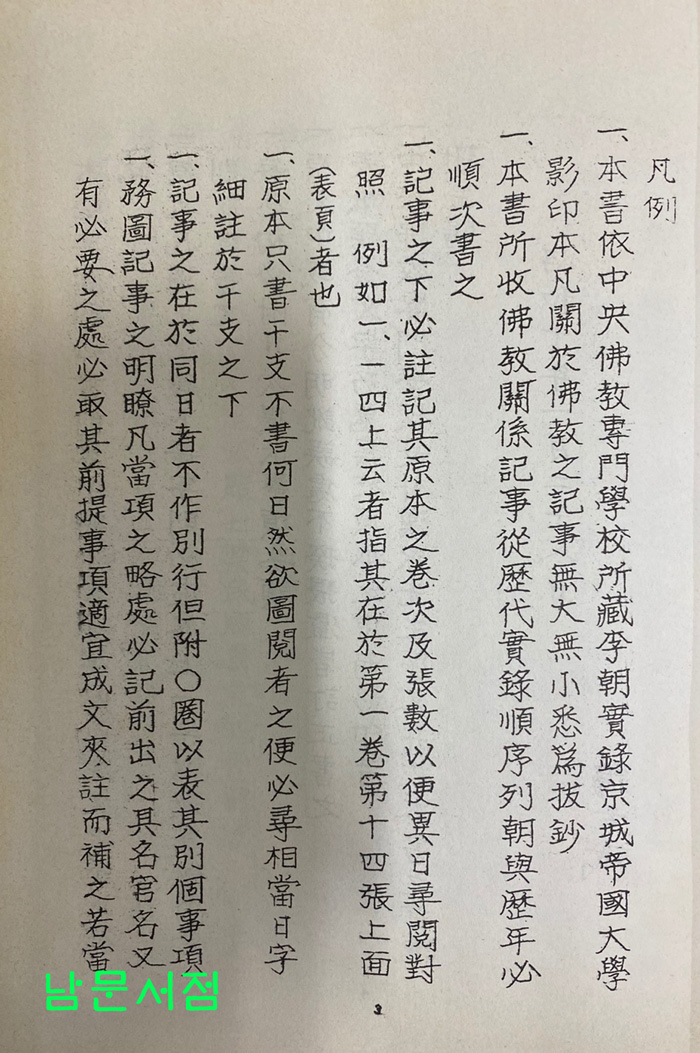 凡例
一、本書依中央佛教專門學校所藏李朝實錄京城帝國大學
影印本凡關於佛教之記事無大無小悉爲拔鈔
一、本書所收佛教關係記事從歷代實錄順序列朝與歷年必
順次書之
一、記事之下必註記其原本之卷次及張數以便異日尋閱對
照 例如一、一四上云者指其在於第一卷第十四張上面
(表頁)者也
一、原本只書干支不書何日然欲圖閱者之便必尋相當日字
細註於干支之下
一、記事之在於同日者不作別行但附○圈以表其別個事項
一、務圖記事之明瞭凡當項之略處必記前出之具名官名又
有必要之處必取其前提事項適宜成文夾註而補之若當
3
남문서점